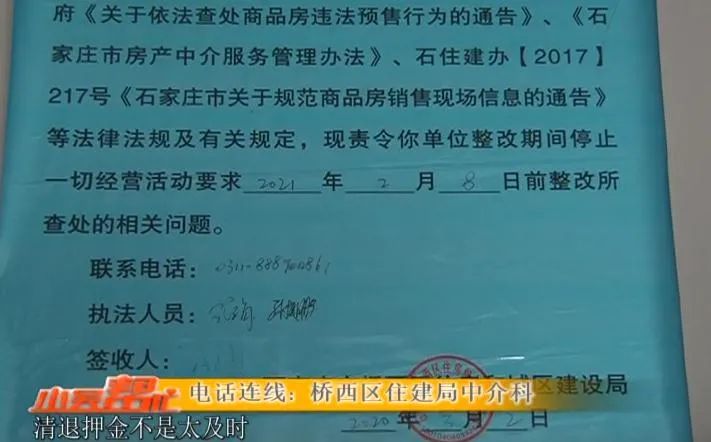 府《关于依法查处商品房违法预售行为的通告》、《石
家庄市房产中介服务管理办法》、石住建办【2017】
217号《石家庄市关于规范商品房销售现场信息的通告》
等法律法规及有关规定，现责令你单位整改期间停止
一切经营活动要求 2021 年 2 月 8 日前整改所
查处的相关问题。
联系电话：
执法人员：
签收人：
城区建设局
2020年 2月 2日
电话连线：桥西区住建局中介科
清退押金不是太及时